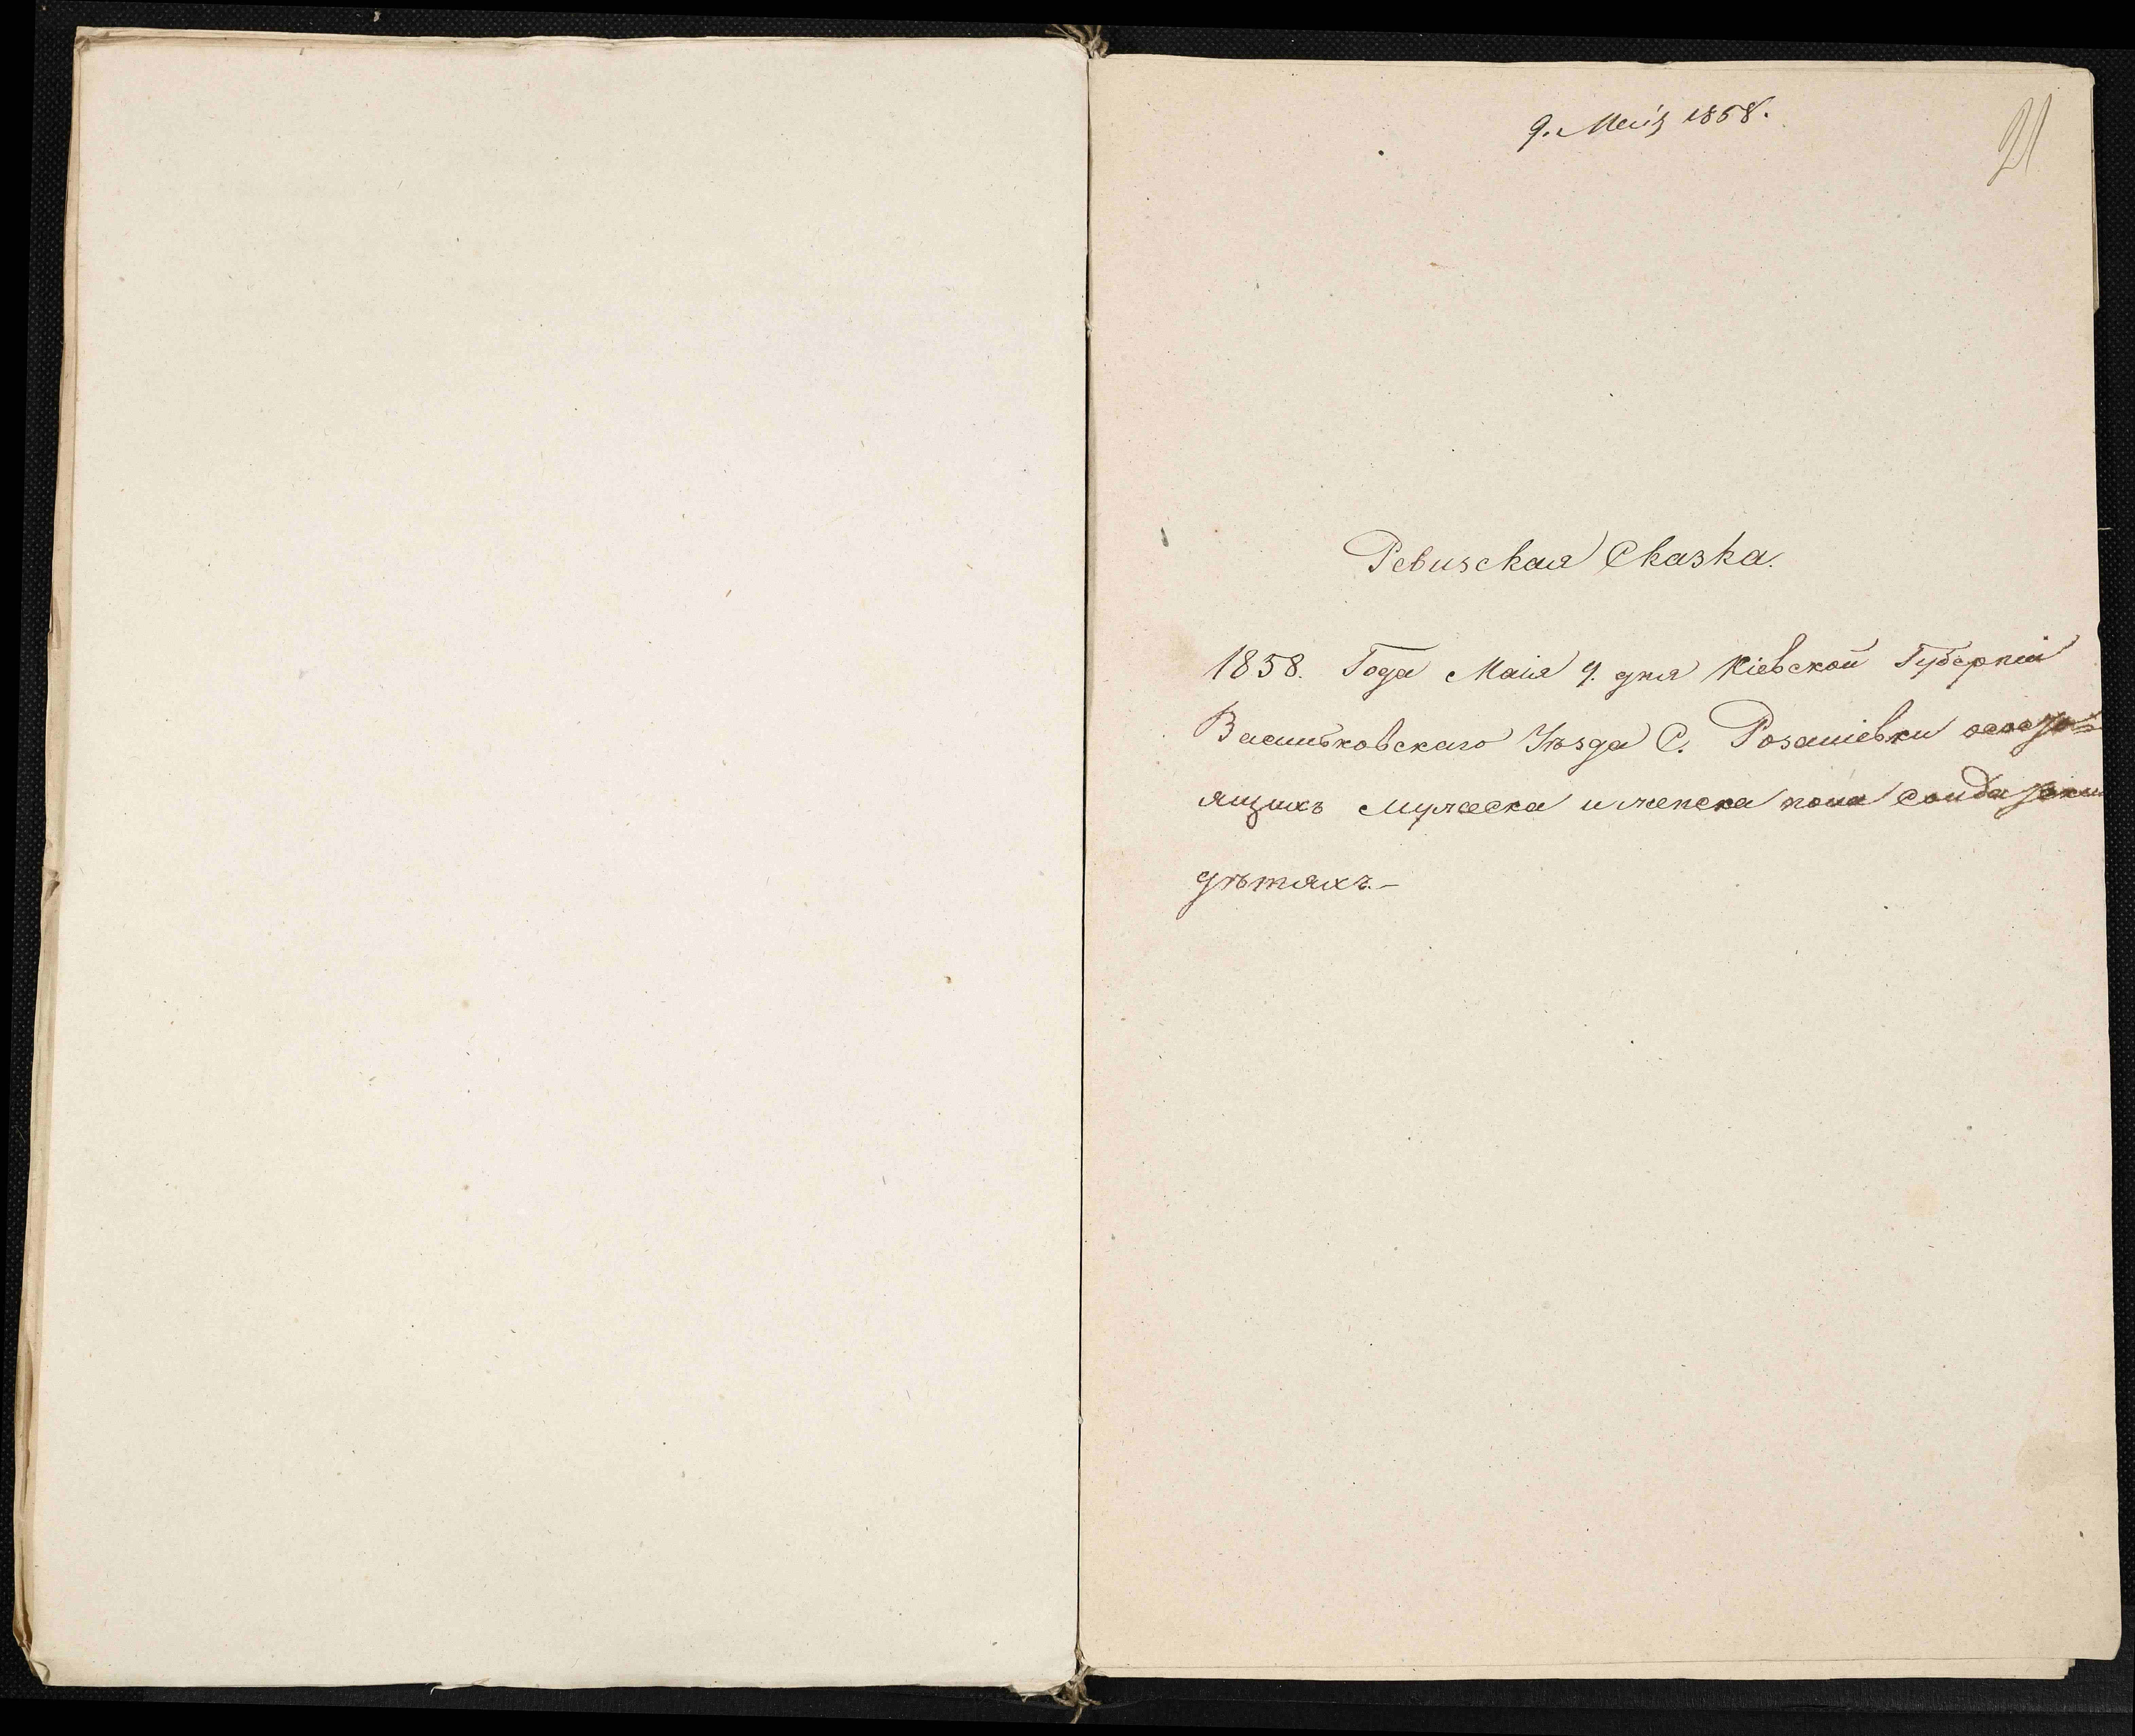 9. Маія 1858.
21
Ревизская Сказка.
1858. Года Маія 9. дня Кіевской Губерніи
Васильковскаго Уѣзда С. Розаліевки о состо=
ящихъ мужеска и женска пола солдатскихъ
дѣтяхъ.-